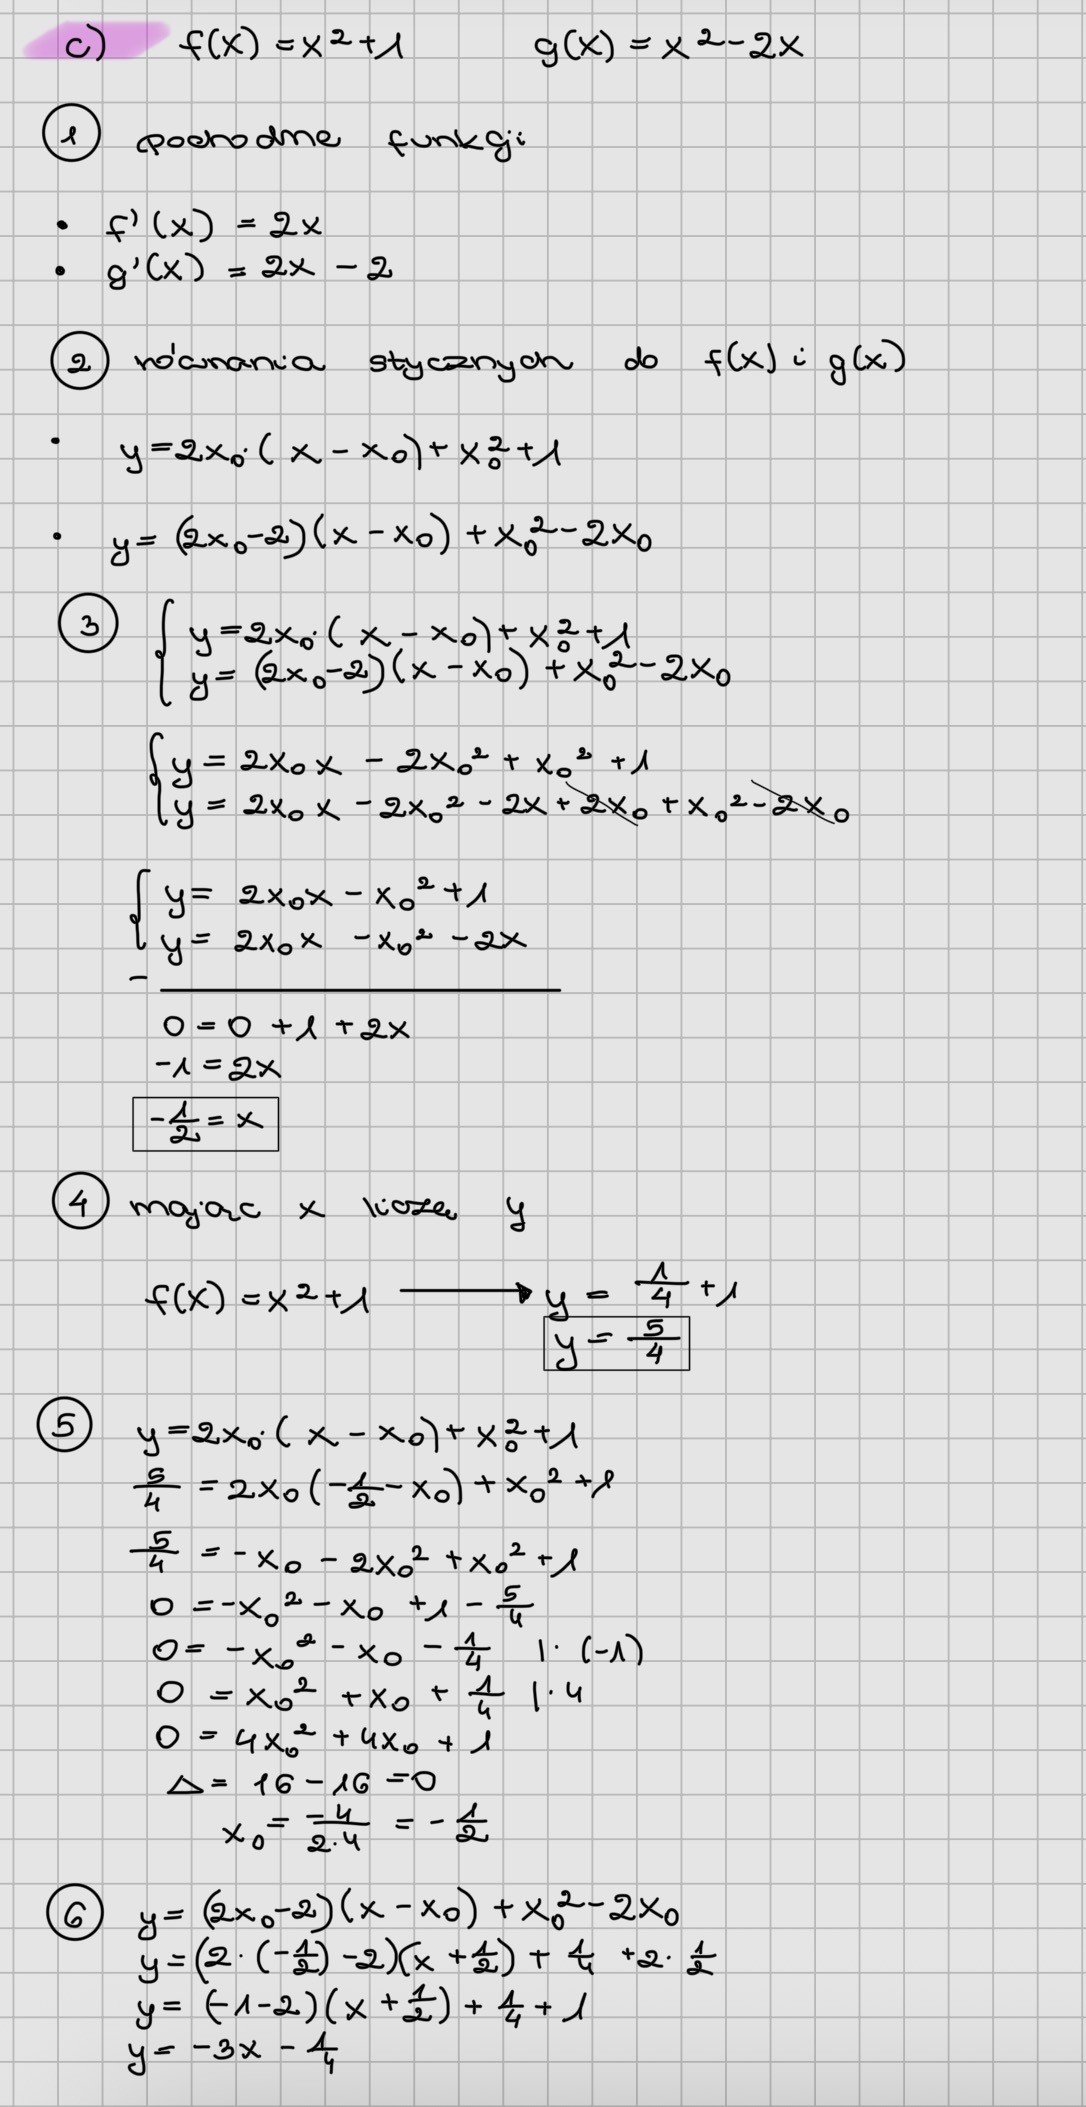 c) f(x) = x² + 1 g(x) = x² - 2x
1 pochodne funkcji
• f'(x) = 2x
• g'(x) = 2x - 2
2 równania stycznych do f(x) i g(x)
• y = 2x₀·(x - x₀) + x₀² + 1
• y = (2x₀-2)(x - x₀) + x₀² - 2x₀
3 { y = 2x₀·(x - x₀) + x₀² + 1
y = (2x₀-2)(x - x₀) + x₀² - 2x₀
{ y = 2x₀x - 2x₀² + x₀² + 1
y = 2x₀x - 2x₀² - 2x + 2x₀ + x₀² - 2x₀
{ y = 2x₀x - x₀² + 1
y = 2x₀x - x₀² - 2x
-
0 = 0 + 1 + 2x
-1 = 2x
-1/2 = x
4 mając x liczę y
f(x) = x² + 1 → y = 1/4 + 1
y = 5/4
5 y = 2x₀·(x - x₀) + x₀² + 1
5/4 = 2x₀(-1/2 - x₀) + x₀² + 1
5/4 = -x₀ - 2x₀² + x₀² + 1
0 = -x₀² - x₀ + 1 - 5/4
0 = -x₀² - x₀ - 1/4 |·(-1)
0 = x₀² + x₀ + 1/4 |·4
0 = 4x₀² + 4x₀ + 1
Δ = 16 - 16 = 0
x₀ = -4/2·4 = -1/2
6 y = (2x₀-2)(x - x₀) + x₀² - 2x₀
y = (2·(-1/2) - 2)(x + 1/2) + 1/4 + 2·1/2
y = (-1-2)(x + 1/2) + 1/4 + 1
y = -3x - 1/4